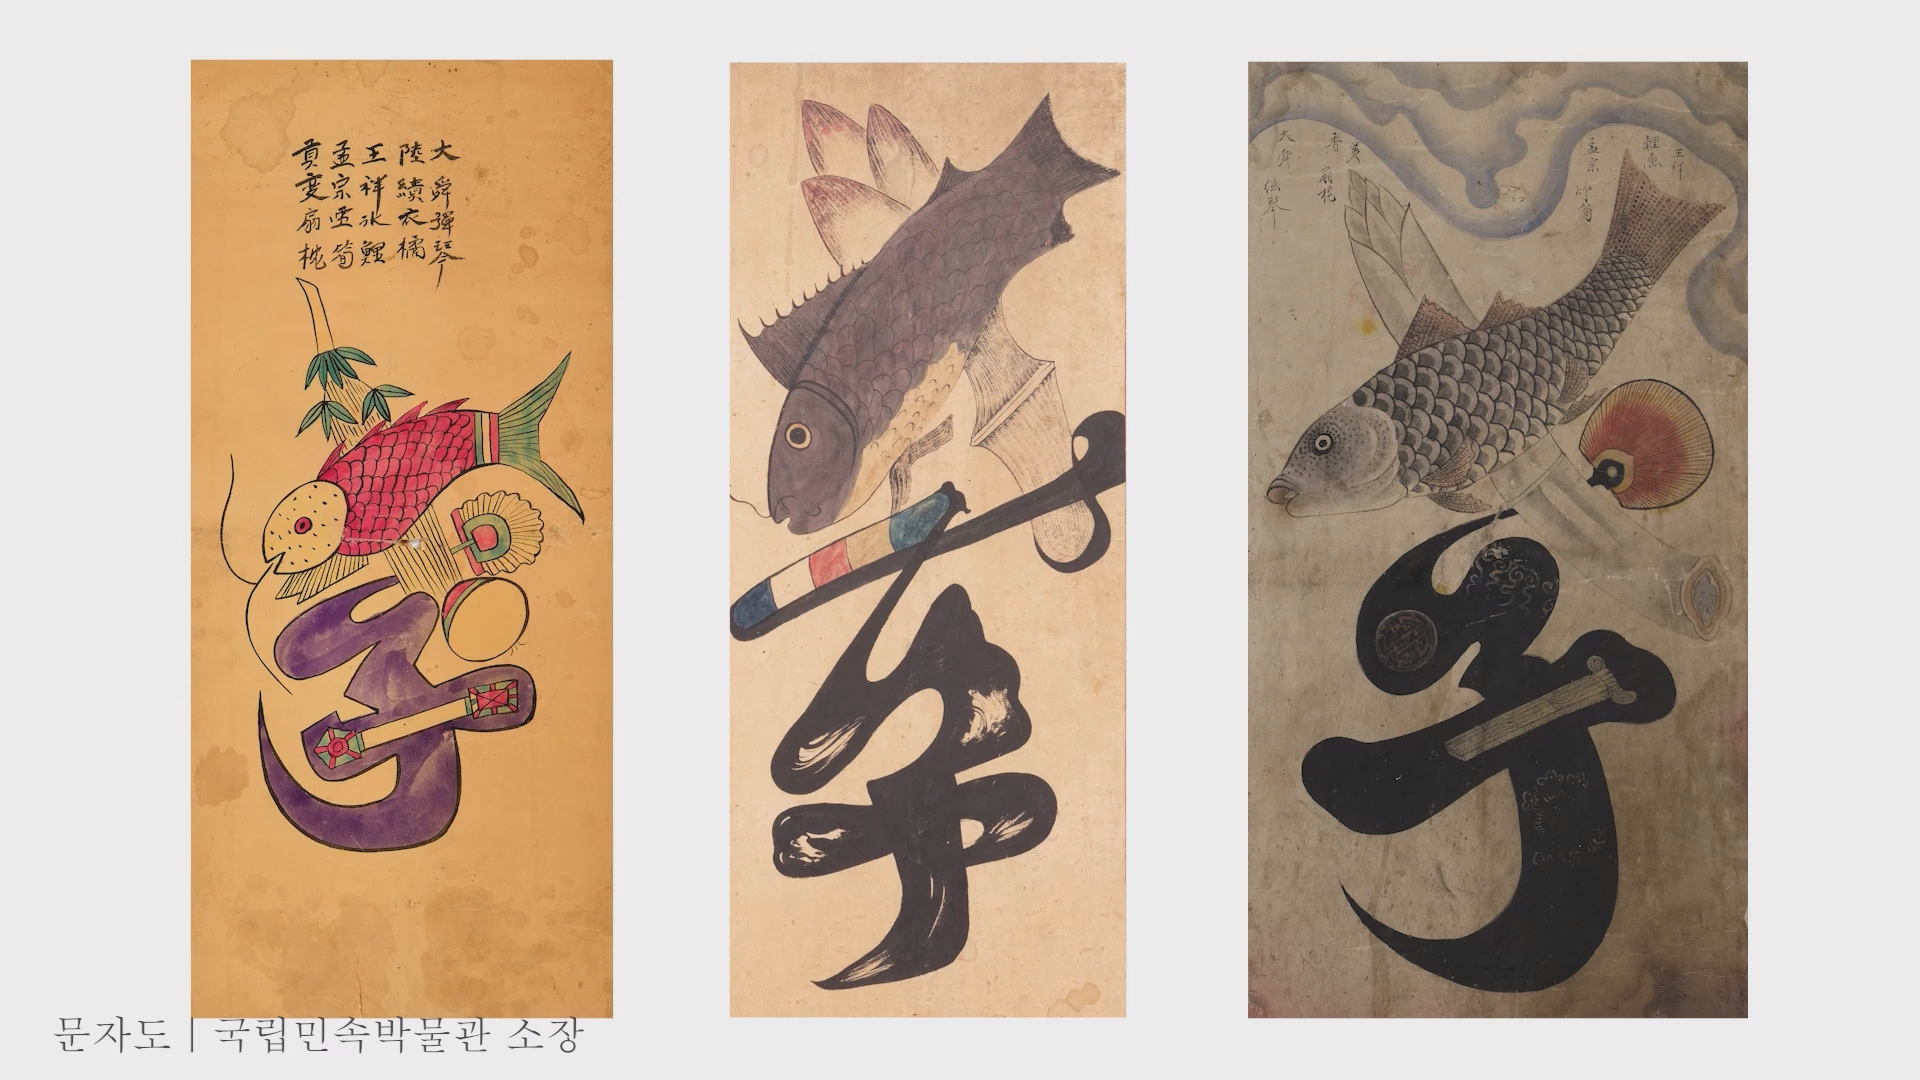 大舜彈琴
陸績衣橘
王祥氷鯉
孟宗雪筍
扇枕
孝
王祥
鯉魚
孟宗竹筍
黃香
扇枕
大舜絃琴
문자도 | 국립민속박물관 소장